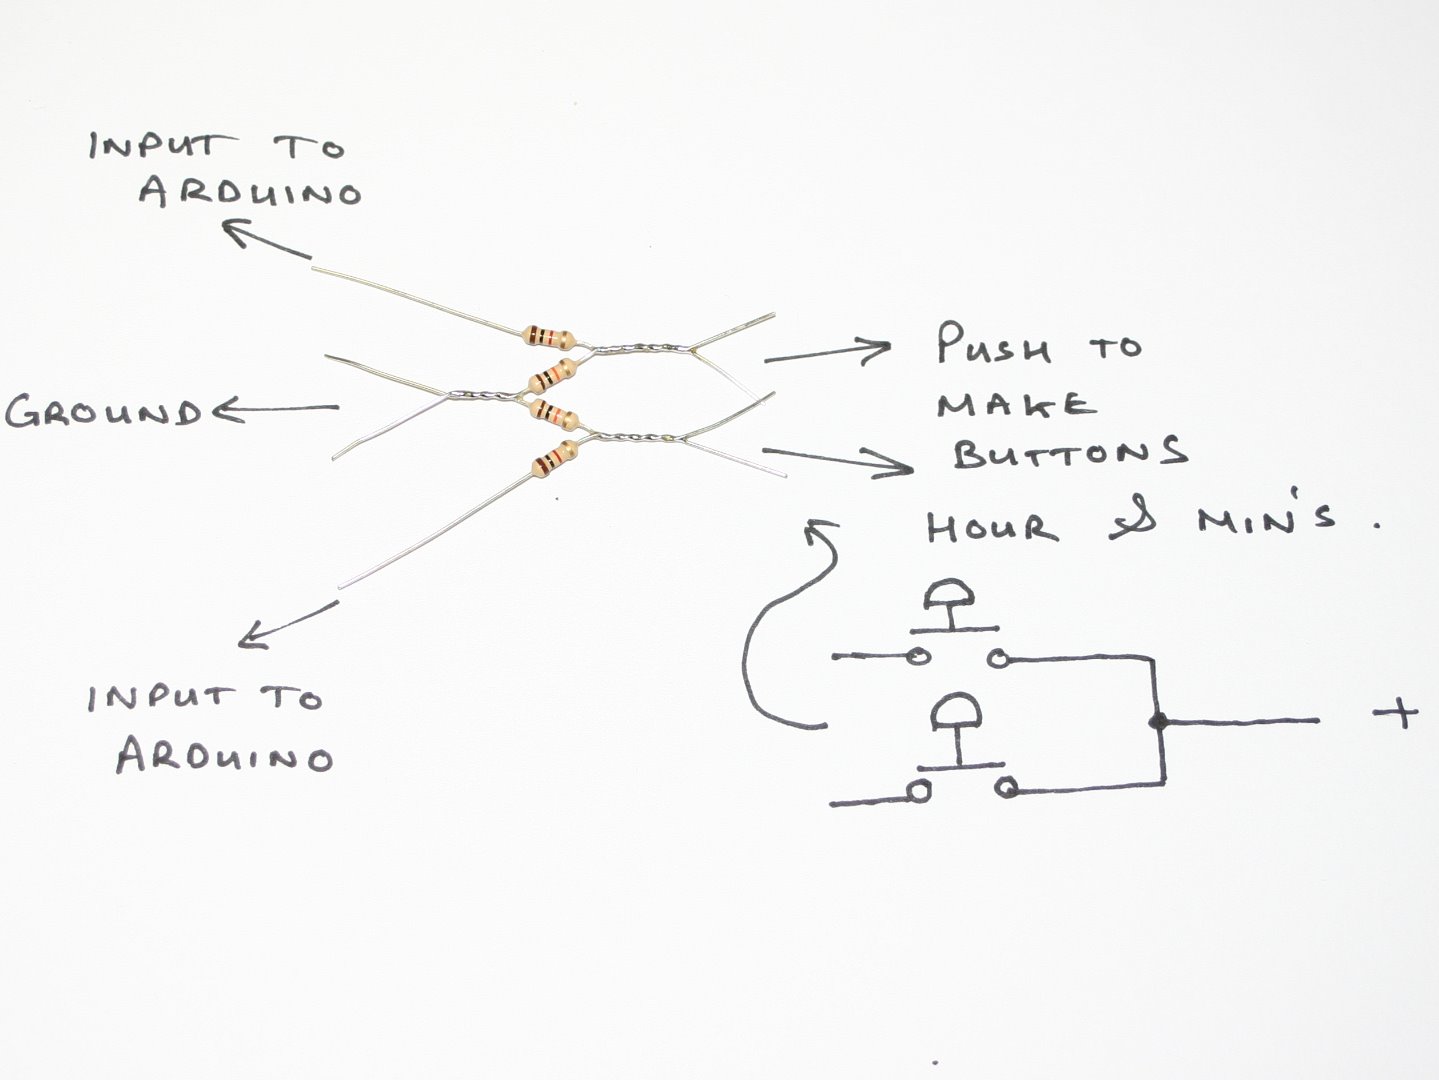 INPUT TO
ARDUINO
GROUND
PUSH TO
MAKE
BUTTONS
HOUR & MIN'S.
INPUT TO
ARDUINO
+